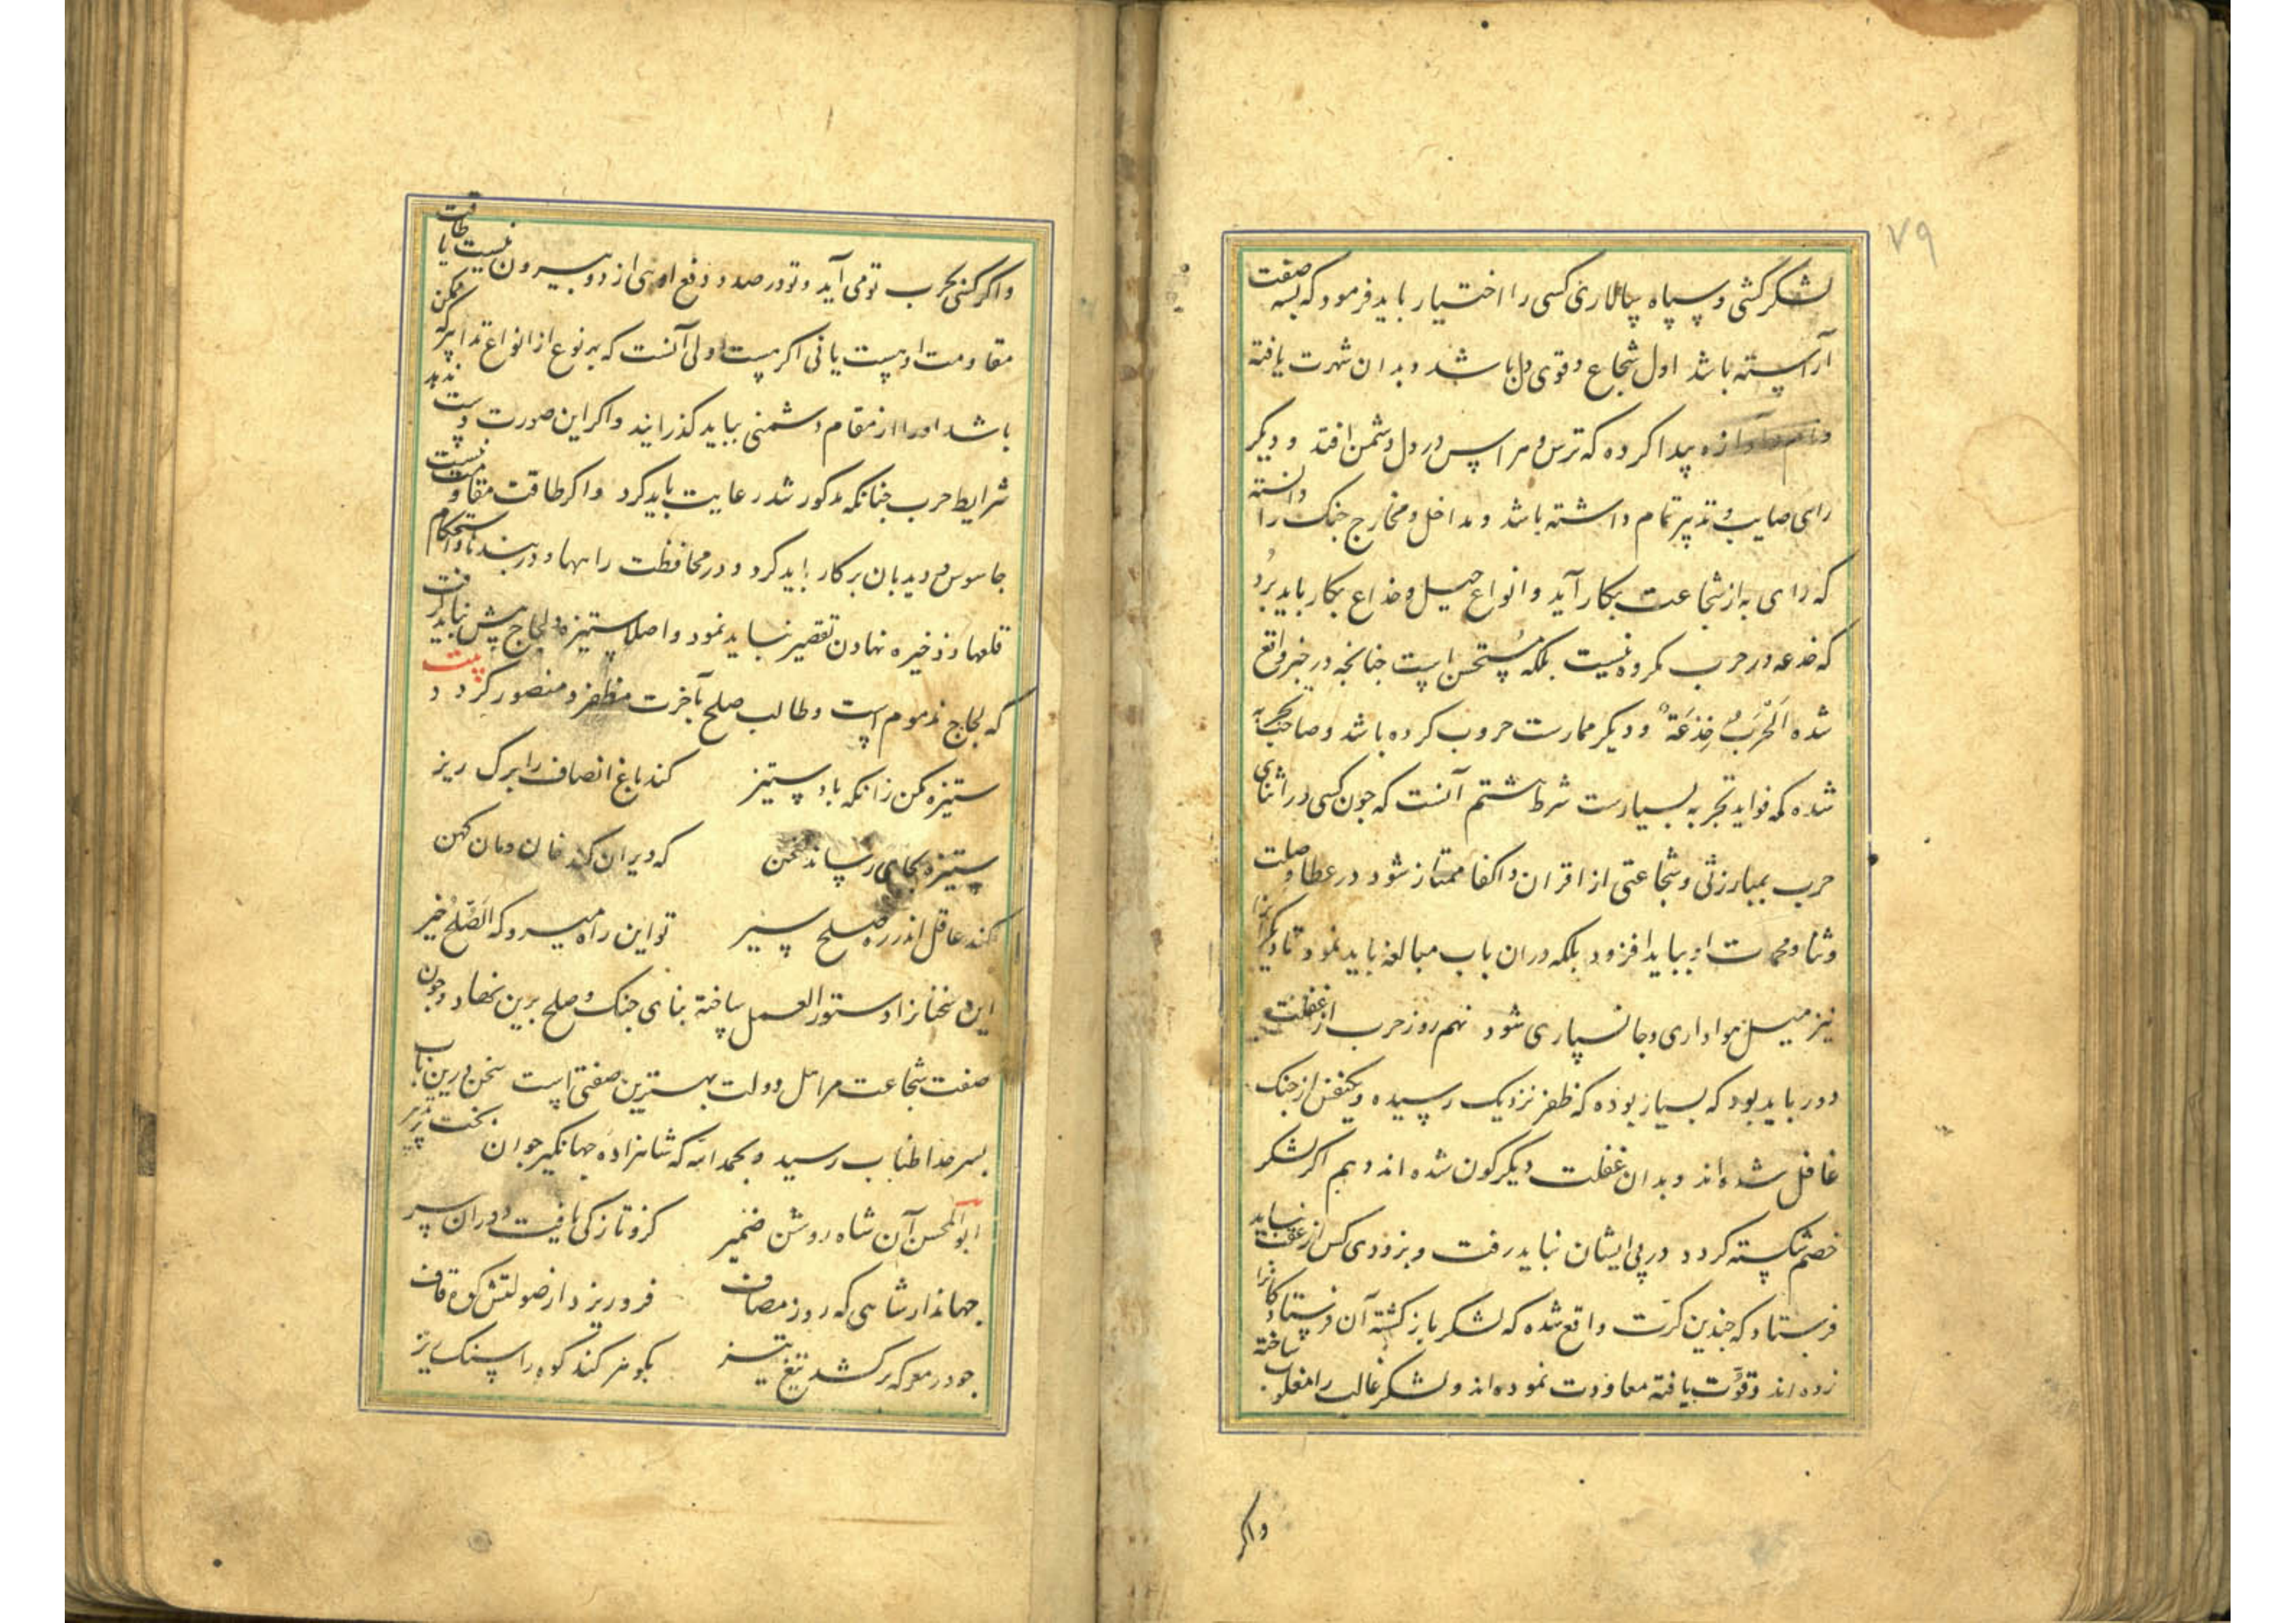 ۷۹
لشکرکشی و سپاه سالاری کسی را اختیار باید فرمود که بسه صفت
آراسته باشد اول شجاع و قوی دل باشد و بدان شهرت یافته
آوازه پیدا کرده که ترس و هراس در دل دشمن افتد و دیکر
رای صایب و تدبیر تمام داشته باشد و مداخل و مخارج جنک را دانسته
که رای به از شجاعت بکار آید و انواع حیل و خداع بکار باید برد
که خدعه در حرب مکروه نیست بلکه مستحسن است جنانجه در خبر واقع
شده اَلْحَرْبُ خِدْعَةٌ و دیکر ممارست حروب کرده باشد و صاحب تجربه
شده که فواید تجربه بسیارست شرط هشتم آنست که جون کسی در اثنای
حرب بمبارزتی و شجاعتی از اقران و اکفا ممتاز شود در عطا و صلت
و ثنا و محمدت او بباید افزود بلکه دران باب مبالغه باید نمود تا دیکرانرا
نیز میل هواداری و جانسپاری شود نهم روز حرب از غفلت
دور باید بود که بسیار بوده که ظفر نزدیک رسیده و یکنفس از جنک
غافل شده اند و بدان غفلت دیکرکون شده اند دهم اکر لشکر
خصم شکسته کردد در پی ایشان نباید رفت و بزودی کس از عقب نباید
فرستاد که جندین کرّت واقع شده که لشکر باز کشته آن فرستادکانرا
زده اند و قوّت یافته معاودت نموده اند و لشکر غالب را مغلوب ساخته
واکر
واکر کسی بحرب تو می آید و تو در صدد دفع اویی از دو بیرون نیست یا طاقت
مقاومت او هست یا نی اکر هست اولی آنست که بهر نوع از انواع تدابیر که ممکن
باشد او را از مقام دشمنی بباید کذرانید واکر این صورت دست ندهد
شرایط حرب جنانکه مذکور شد رعایت باید کرد واکر طاقت مقاومت نیست
جاسوس و دیدبان برکار باید کرد و در محافظت راهها و دربندها و استحکام
قلعها و ذخیره نهادن تقصیر نباید نمود و اصلا ستیزه و لجاج پیش نباید کرفت
که لجاج مذموم است و طالب صلح بآخرت مظفر و منصور کردد بیت
ستیزه مکن زانکه باد ستیز کند باغ انصاف را برک ریز
ستیزه بجایی رساند سخن که ویران کند خان و مان کهن
کند عاقل اندر ره صلح سیر تو این راه میرو که الصُّلْحُ خَیْر
این سخنانرا دستور العمل ساخته بنای جنک و صلح برین نهاد و جون
صفت شجاعت مر اهل دولت بهترین صفتی است سخن درین باب
بسر حد اطناب رسید و بحمد الله که شاهزادهٔ جهانکیر جوان بخت
ابوالمحسن آن شاه روشن ضمیر کزو تازکی یافت دوران پیر
جهاندار شاهی که روز مصاف فرو ریزد از صولتش کوه قاف
جو در معرکه برکشد تیغ تیز بکوهر کند کوه را سنک ریز